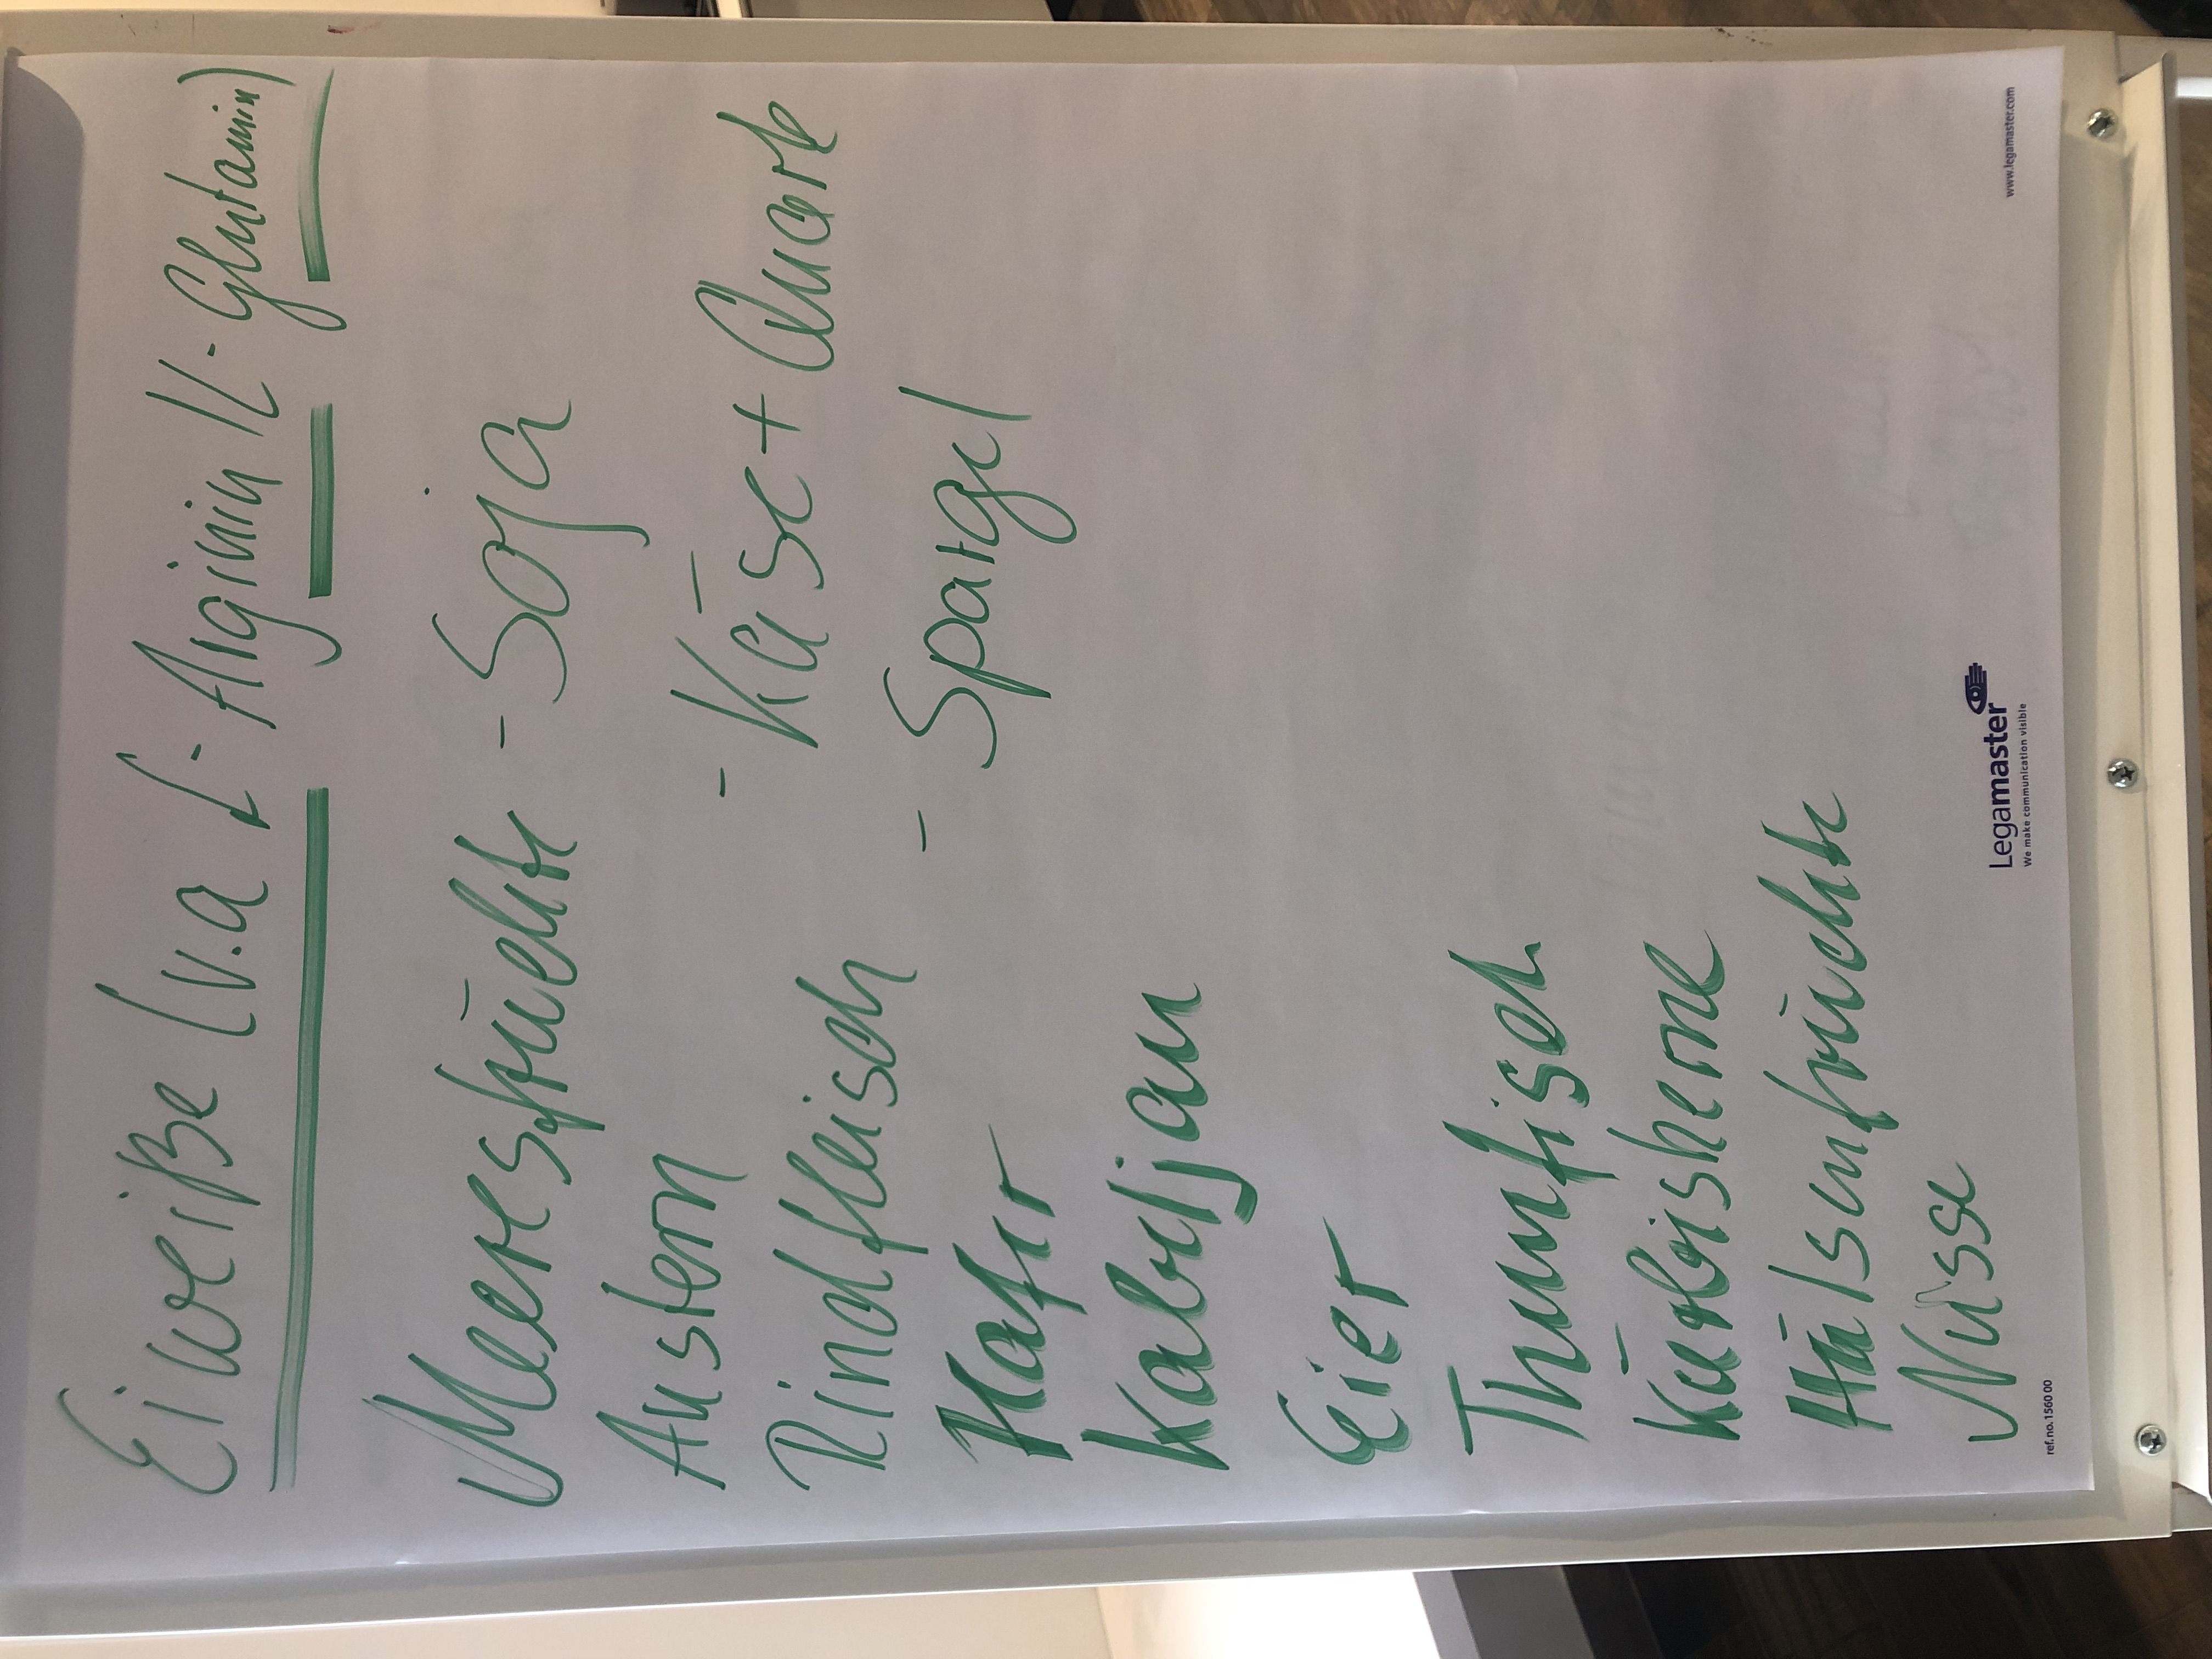 Eiweiße (v.a L-Arginin / L-Glutamin)
Meeresfrüchte - Soja
Austern - Käse + Quark
Rindfleisch - Spargel
Hafer
Kabeljau
Eier
Thunfisch
Kürbiskerne
Hülsenfrüchte
Nüsse
ref. no. 1560 00
Legamaster
We make communication visible
www.legamaster.com